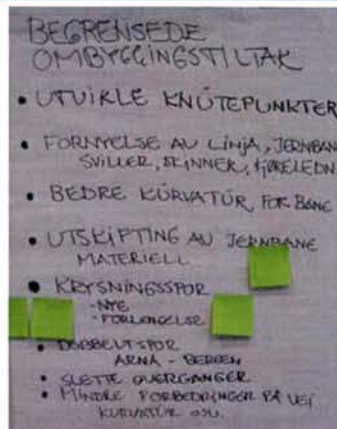 BEGRENSEDE
OMBYGGINGSTILTAK
• UTVIKLE KNUTEPUNKTER
• FORNYELSE AV LINJA, JERNBAN
SVILLER, SKINNER, KJØRELEDN
• BEDRE KURVATUR, FOR BANE
• UTSKIFTING AV JERNBANE
MATERIELL
• KRYSNINGSSPOR
- NYE
- FORLENGELSE
• DOBBELTSPOR
ARNA - BERGEN
• SLETTE OVERGANGER
• MINDRE FORBEDRINGER PÅ VEI
KURVATUR OSV.